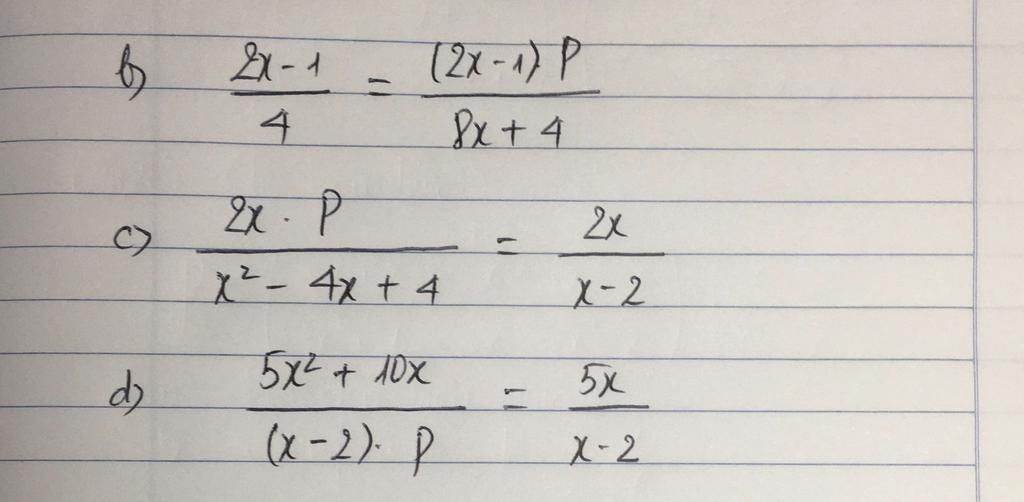 b) (2x-1)/4 = ((2x-1)P)/(8x+4)
c) (2x · P)/(x² - 4x + 4) = 2x/(x-2)
d) (5x² + 10x)/((x-2) · P) = 5x/(x-2)